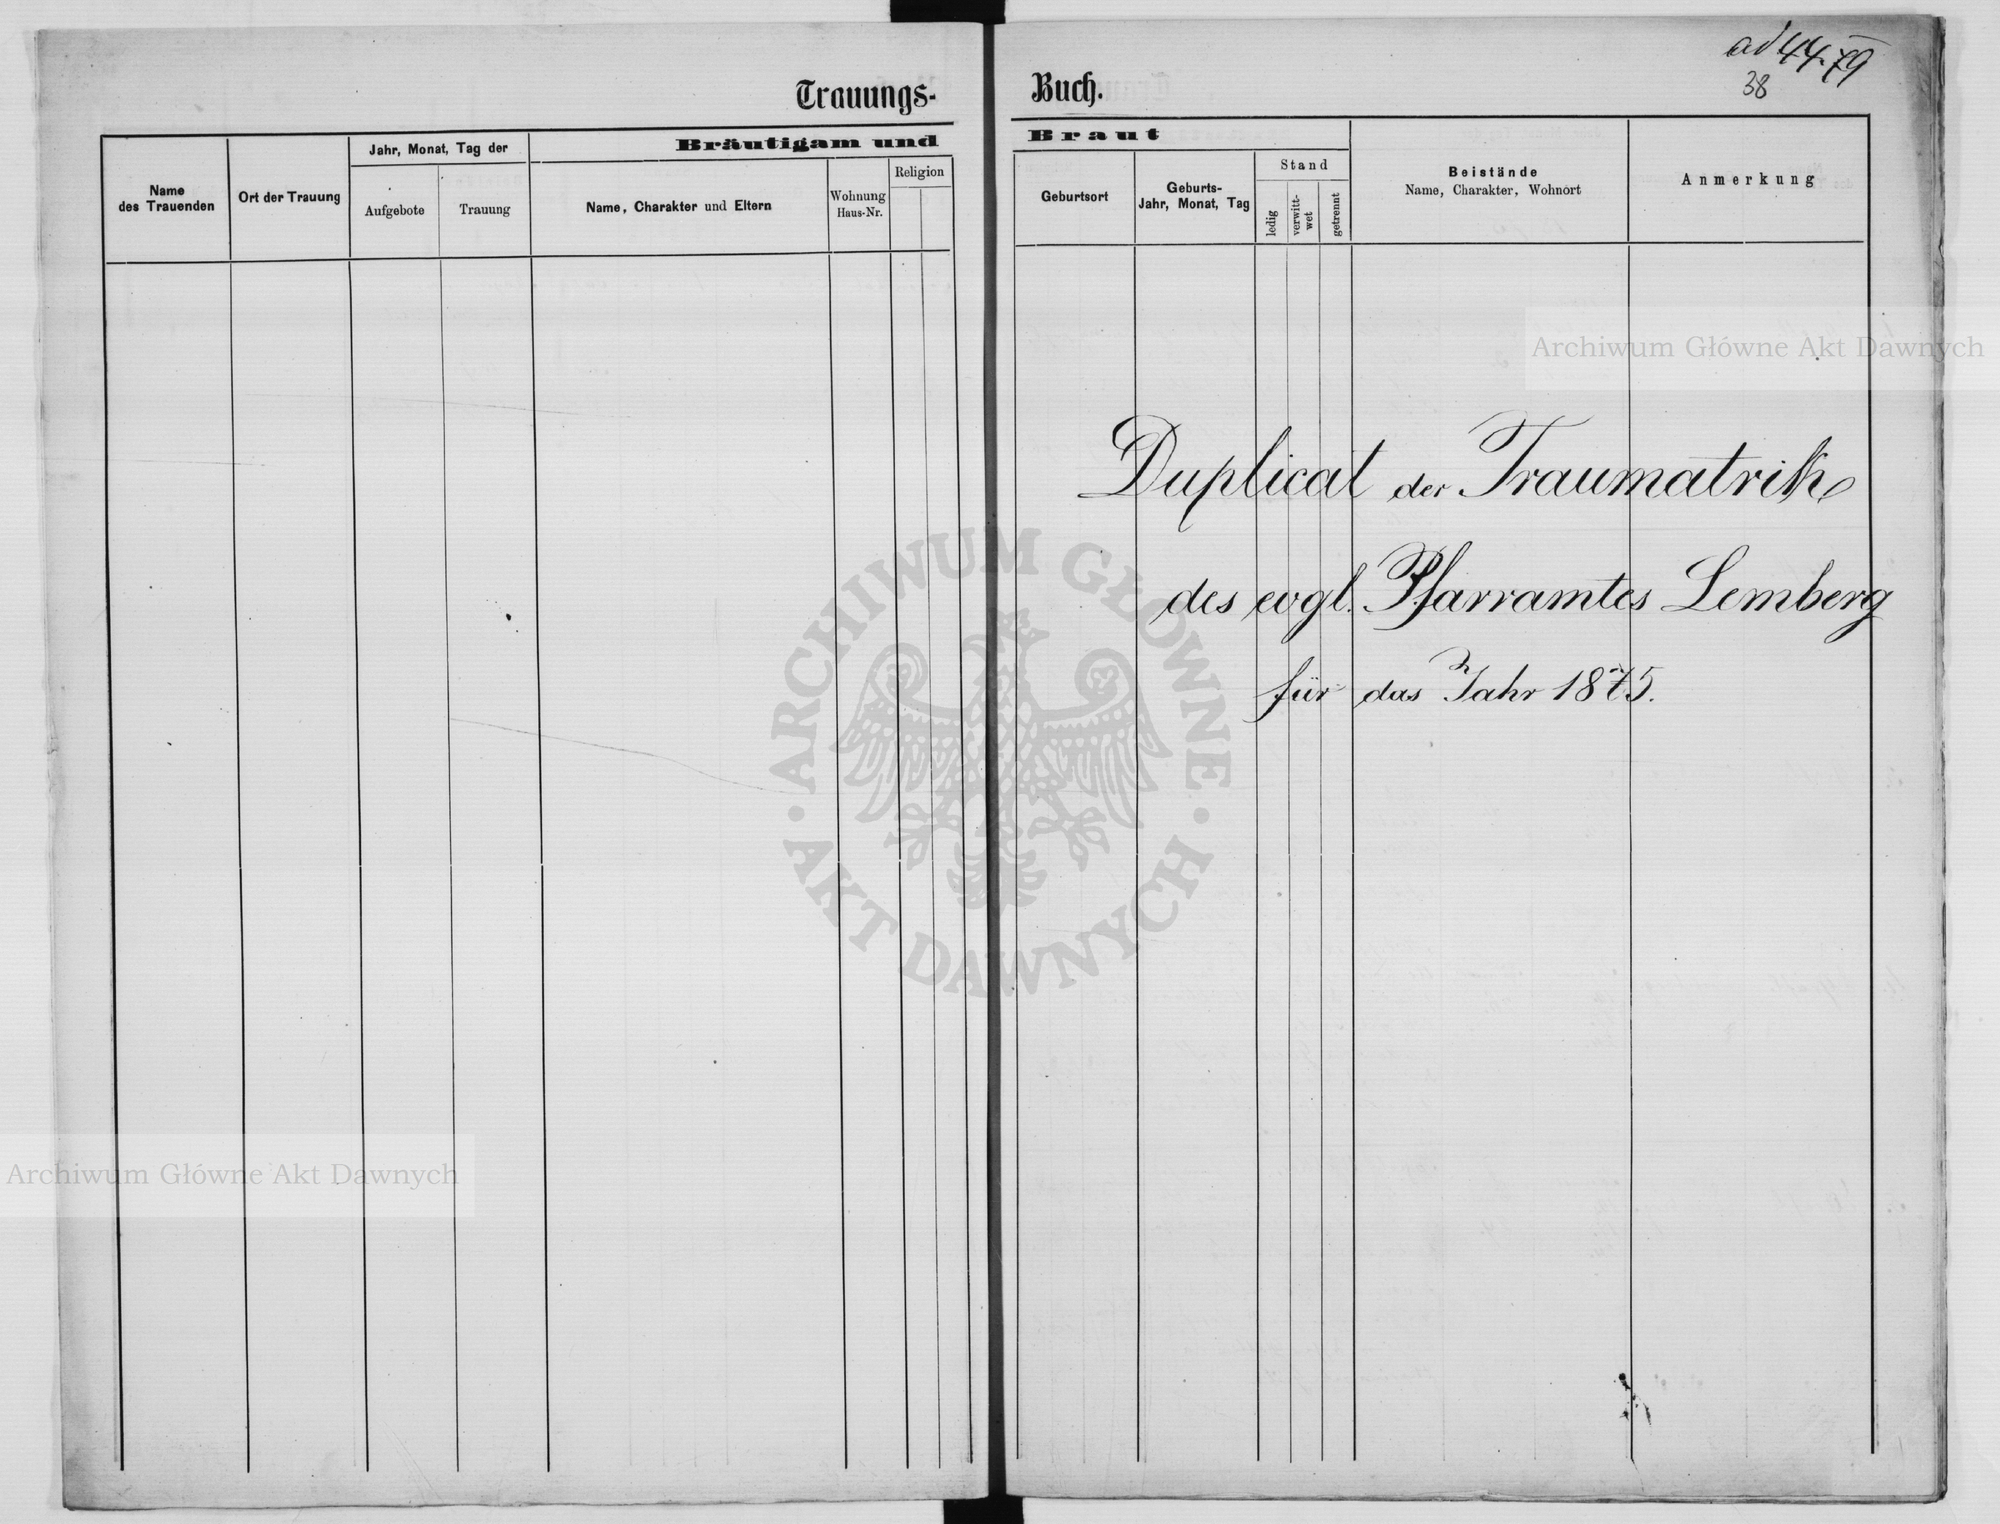 ad 44.79
38
Trauungs- Buch.
Bräutigam und Braut
Name
des Trauenden
Ort der Trauung
Jahr, Monat, Tag der
Aufgebote
Trauung
Name, Charakter und Eltern
Wohnung
Haus-Nr.
Religion
Geburtsort
Geburts-
Jahr, Monat, Tag
Stand
ledig
verwitt-
wet
getrennt
Beistände
Name, Charakter, Wohnort
Anmerkung
Archiwum Główne Akt Dawnych
Duplicat der Traumatrik
des evgl. Pfarramtes Lemberg
für das Jahr 1875.
ARCHIWUM GŁÓWNE
AKT DAWNYCH
Archiwum Główne Akt Dawnych